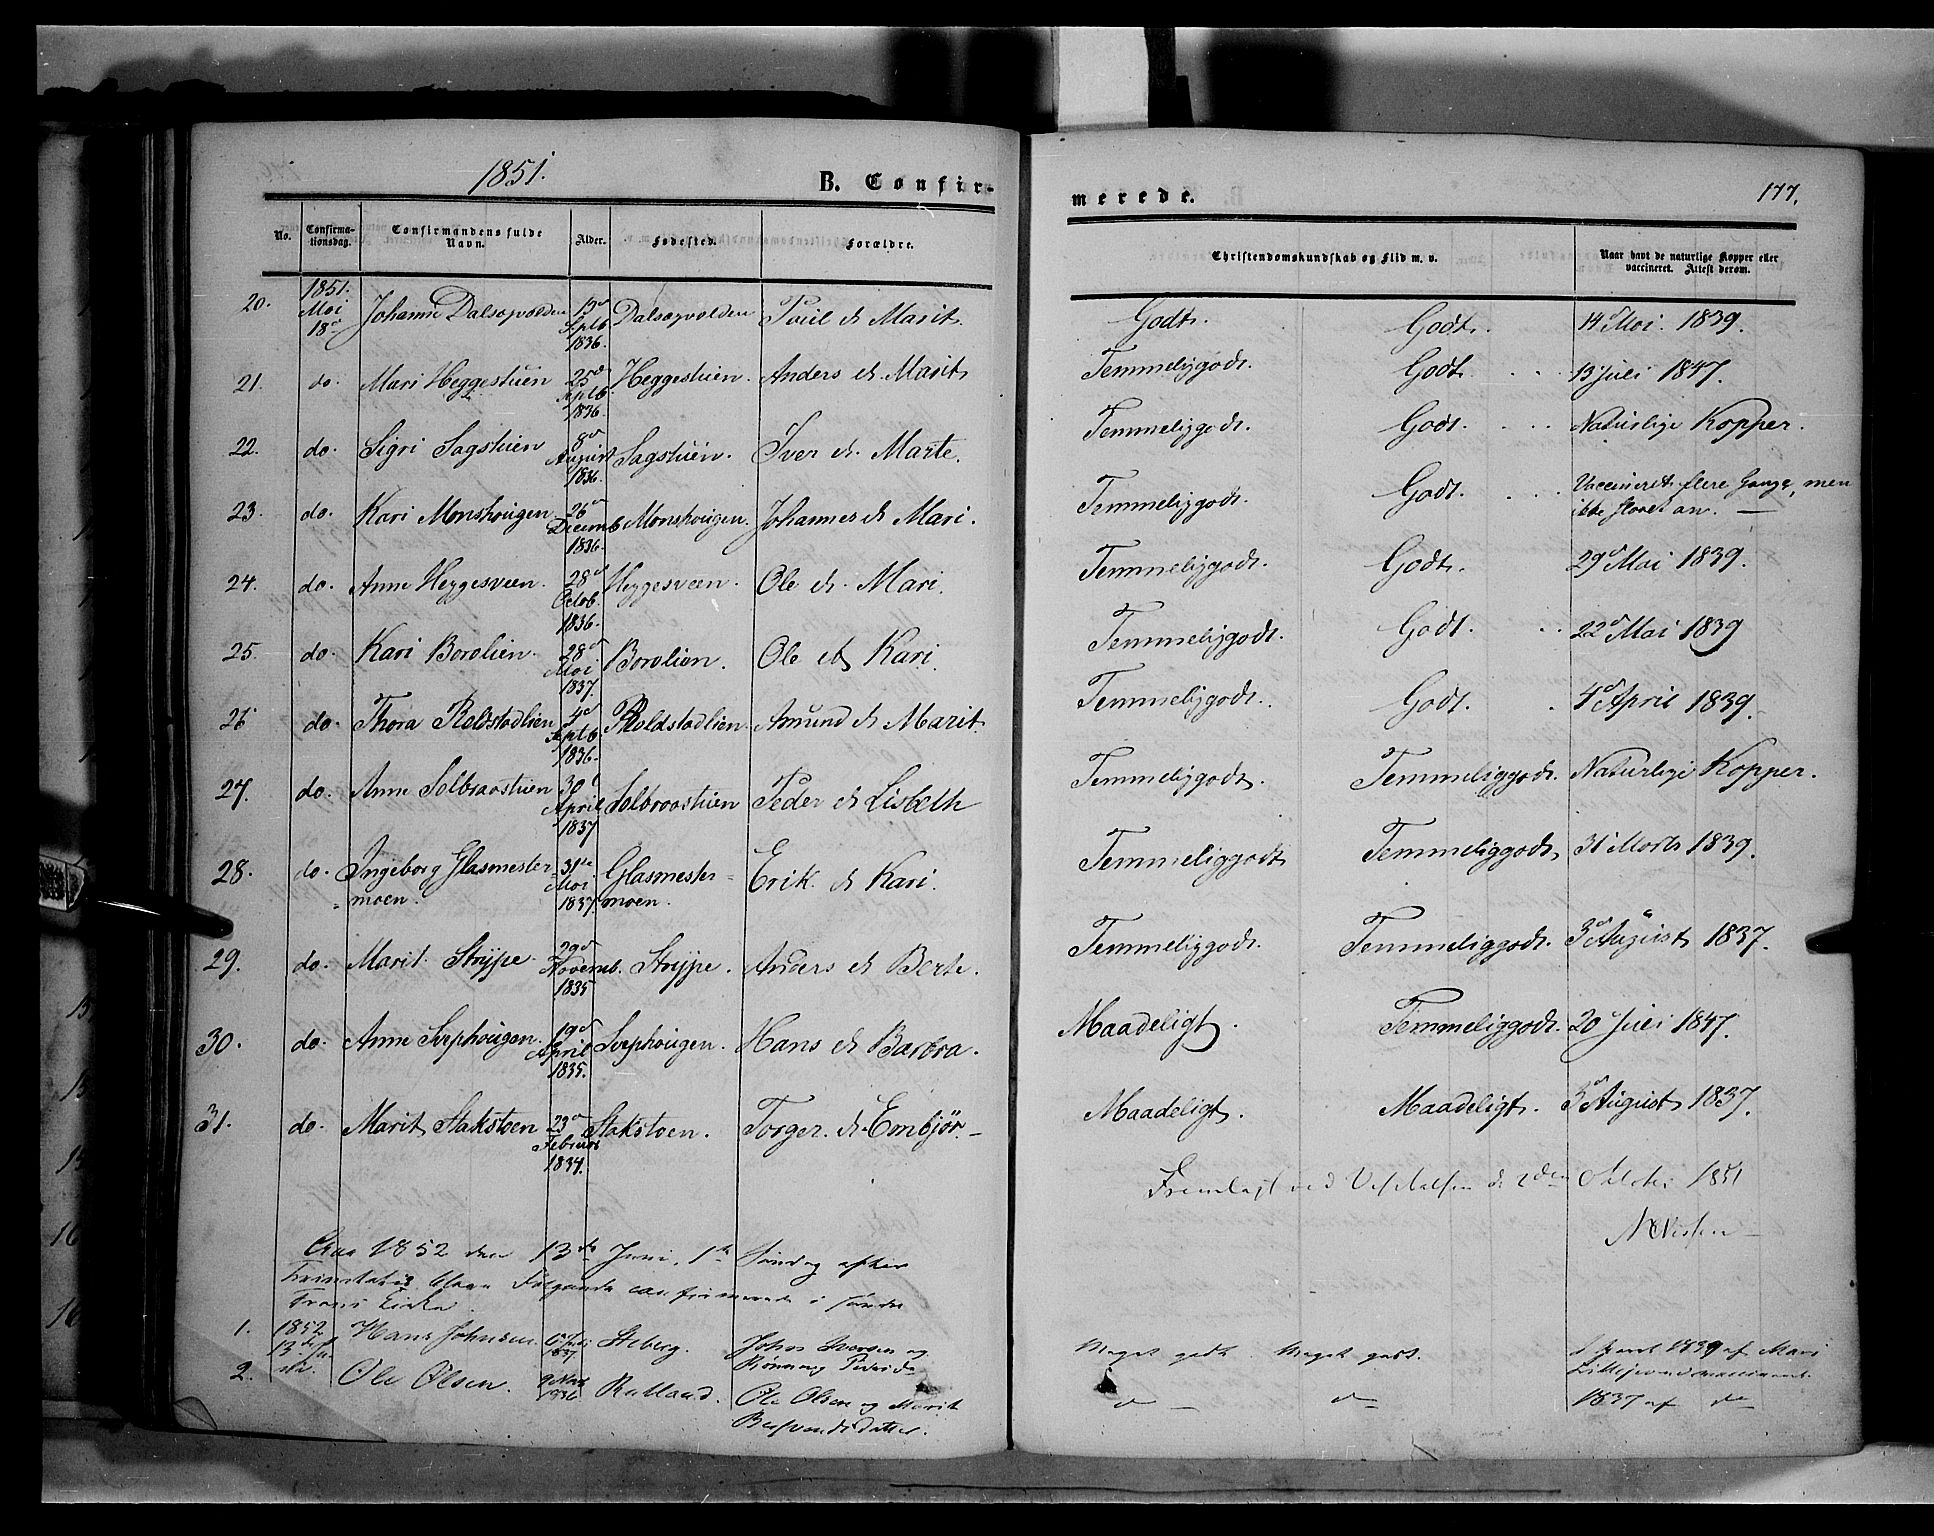 1851.
B. Confir-
merede.
177.
No.
Confirma-
tionsdag.
Confirmandens fulde
Navn.
Alder.
Fødested.
Forældre.
Christendomskundskab og Flid m. v.
Naar havt de naturlige Kopper eller
vaccineret. Attest derom.
1851.
20. Mai 18de Johanne Dalsegvolden 13de Septb 1836. Dalsegvolden Poul et Marit. Godt. Godt. 14de Mai 1839.
21. do. Mari Heggestuen 25de Septb 1836. Heggestuen. Anders et Marit Temmeliggodt. Godt. 13 Juli 1847.
22. do. Sigri Sagstuen 8de August 1836. Sagstuen. Iver et Marte. Temmeliggodt. Godt. Naturlige Kopper.
23. do. Kari Monshougen 26de Decemb 1836. Monshougen. Johannes et Mari. Temmeliggodt. Godt. Vaccineret flere Gange, men
ikke slaaet an. —
24. do. Anne Heggesveen. 28de Octob. 1836. Heggesveen. Ole et Mari. Temmeliggodt. Godt. 29de Mai 1839.
25. do. Kari Borolien. 28de Mai 1837. Borolien. Ole et Kari. Temmeliggodt. Godt. 22de Mai 1839
26 do. Thora Roldstadlien 4de Septb 1836. Roldstadlien. Amund et Marit. Temmeliggodt. Godt. 4de April 1839.
27. do. Anne Solbraastuen 30te April 1837 Solbraastuen Peder et Lisbeth Temmeliggodt. Temmeliggodt. Naturlige Kopper.
28. do. Ingeborg Glasmester- 31te Mai 1837. Glasmester- Erik et Kari. Temmeliggodt Temmeliggodt. 31 Marts 1839.
moen. moen.
29. do. Marit Strype 29de Novemb. 1835 Strype. Anders et Berte. Temmeliggodt. Temmeliggodt. 3de August 1837.
30. do. Anne Svephougen. 19de April 1835. Svephougen. Hans et Barbra. Maadeligt. Temmeliggodt. 20de Juli 1847.
31. do. Marit Stakstoen 23de Februar 1834. Stakstoen. Torger et Embjør. — Maadeligt. Maadeligt. 3de August 1837.
Fremlagt ved Visitatsen d. 2den October 1851
Aar 1852 den 13de Juni, 1ste Søndag efter
Trinitatis bleve Følgende confirmerede i søndre
Frons Kirke.
1. 1852 13de Juni Hans Johnsen. 1837 Steberg. John Iversen og
Rønnaug Meget godt. Meget godt. 1839 af Mari
2. do. Ole Olsen. 1836 Rulland. Ole Olsen og Marit do — do — 1837 af do
datter.